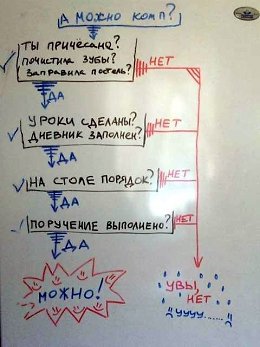 А МОЖНО КОМП?
ТЫ ПРИЧЁСАНА?
ПОЧИСТИЛА ЗУБЫ?
ЗАПРАВИЛА ПОСТЕЛЬ?
НЕТ
ДА
УРОКИ СДЕЛАНЫ?
ДНЕВНИК ЗАПОЛНЕН?
НЕТ
ДА
НА СТОЛЕ ПОРЯДОК?
НЕТ
ДА
ПОРУЧЕНИЕ ВЫПОЛНЕНО?
НЕТ
ДА
МОЖНО!
УВЫ,
НЕТ
УУУУ......